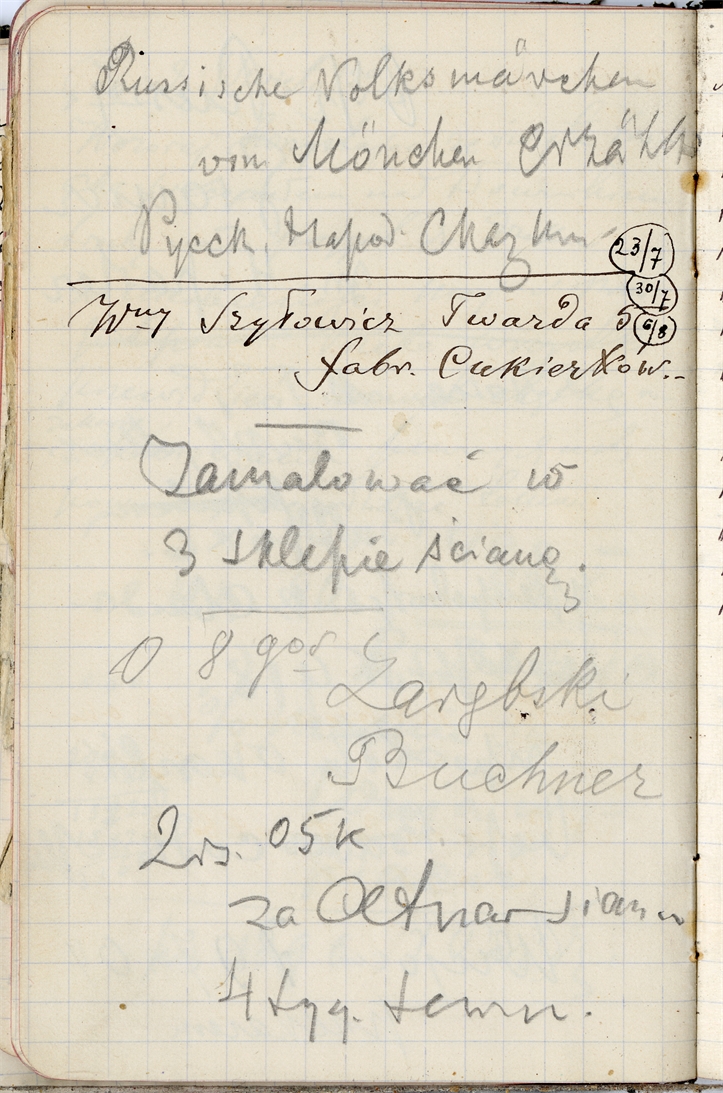 Russische Volksmärchen
von Mönchen Erzählt
Русск. Народ. Сказки - 23/7
30/7
Wny Szyłowicz Twarda 5 6/8
fabr. Cukierków.
Zamalować w
3 sklepie ścianę.
O 8 god Zargbski
Buchner
2 rs. 05 k
za siana
4 tyg. temu.